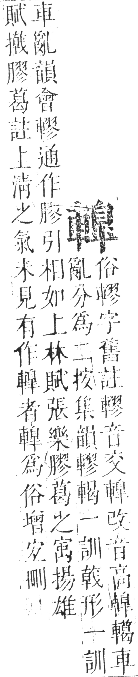 䡘
俗轇字舊註轇音交䡘改音高䡘轕車
亂分爲二按集韻轇轕一訓戟形一訓
車亂韻會轇通作膠引相如上林賦張樂膠葛之寓揚雄
賦撠膠葛註上淸之氣未見有作䡘者䡘爲俗增宜刪